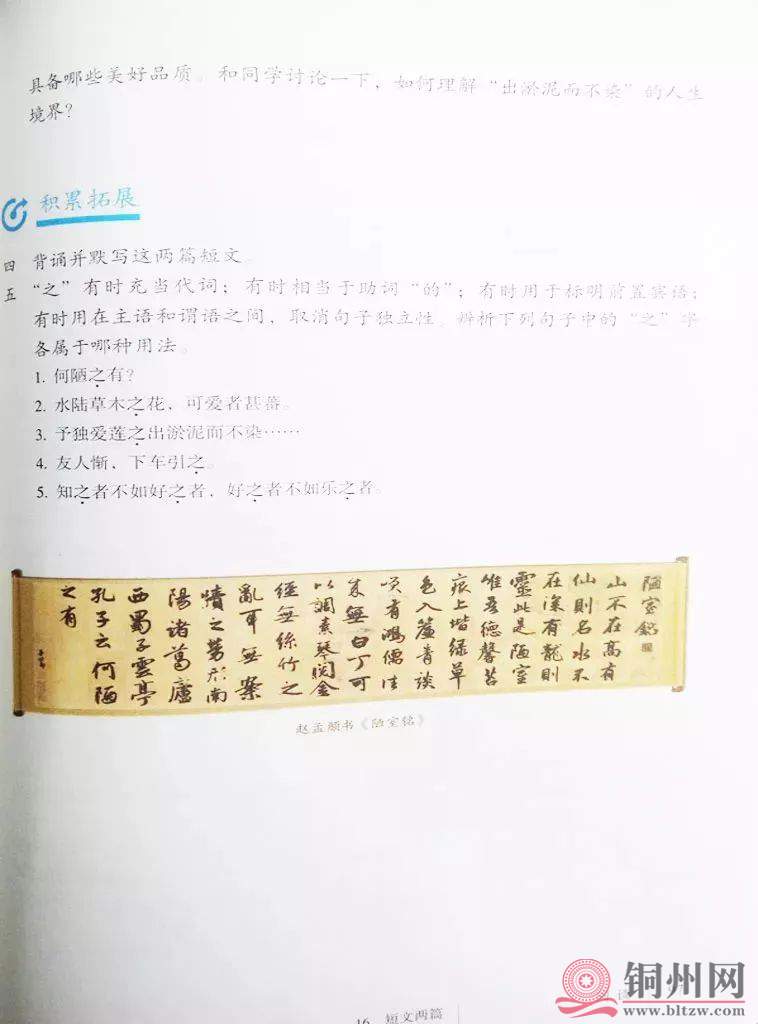 具备哪些美好品质。和同学讨论一下，如何理解“出淤泥而不染”的人生
境界？
积累拓展
四 背诵并默写这两篇短文。
五 “之”有时充当代词；有时相当于助词“的”；有时用于标明前置宾语；
有时用在主语和谓语之间，取消句子独立性。辨析下列句子中的“之”字
各属于哪种用法。
1. 何陋之有？
2. 水陆草木之花，可爱者甚蕃。
3. 予独爱莲之出淤泥而不染……
4. 友人惭，下车引之。
5. 知之者不如好之者，好之者不如乐之者。
陋室銘
山不在高有
仙則名水不
在深有龍則
靈此是陋室
惟吾德馨苔
痕上堦緑草
色入簾青談
笑有鴻儒往
来無白丁可
以調素琴閲金
經無絲竹之
亂耳無案
牘之勞形南
陽諸葛廬
西蜀子雲亭
孔子云何陋
之有
赵孟頫书《陋室铭》
16 短文两篇
铜州网
www.bltzw.com